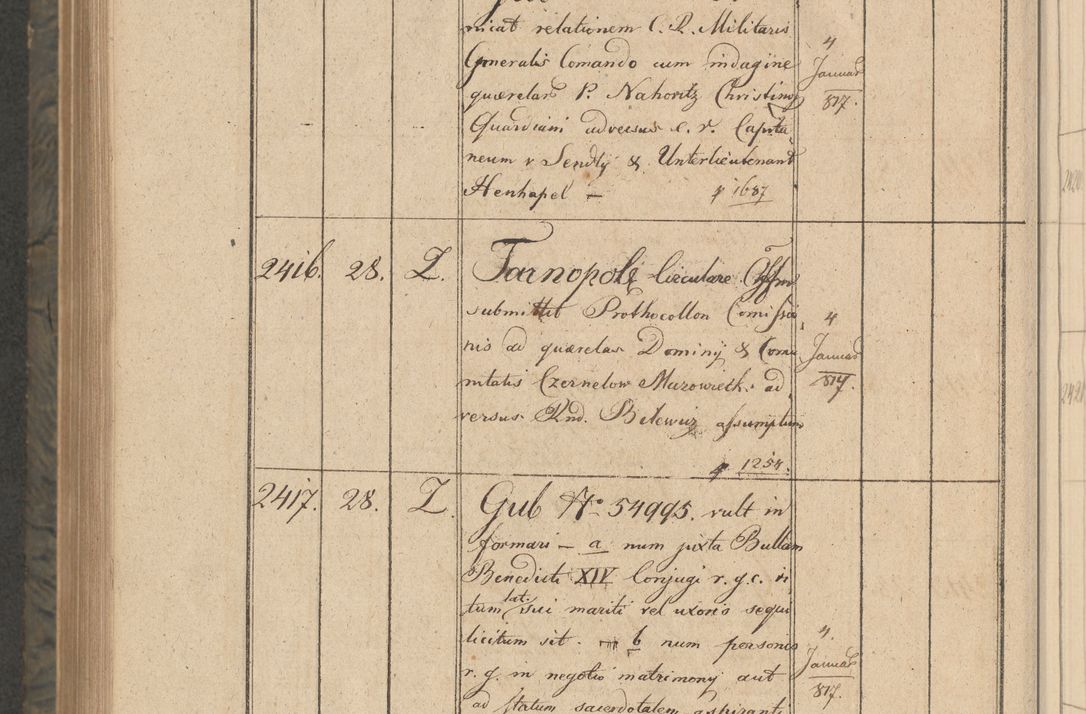 nicat relationem C. R. Militaris
Generalis Comando cum indagine
quærelar P. Nahoritz Christiny
Quardiani adversus c. r. Capita-
neum v Sendly & Unterlieutenant
Henhapel — 1687
4
Januar
817.
2416. 28. Z. Tarnopole Circulare Offm
submittit Prothocollon Comissio
nis ad quærelas Dominij & Comu
nitatis Czernelow Mazowieck. ad
versus Rnd. Bilewicz assumptum
1258.
4
Januar
817.
2417. 28. Z. Gub No. 54995. vult in
formari — a num juxta Bullam
Benedicti XIV Conjugi r. g. c. ri
tum lat. sui mariti vel uxoris sequi
licitum sit. b num personis
r. g. in negotio matrimony aut
ad statum sacerdotalem aspiranti
4.
Januar
817.